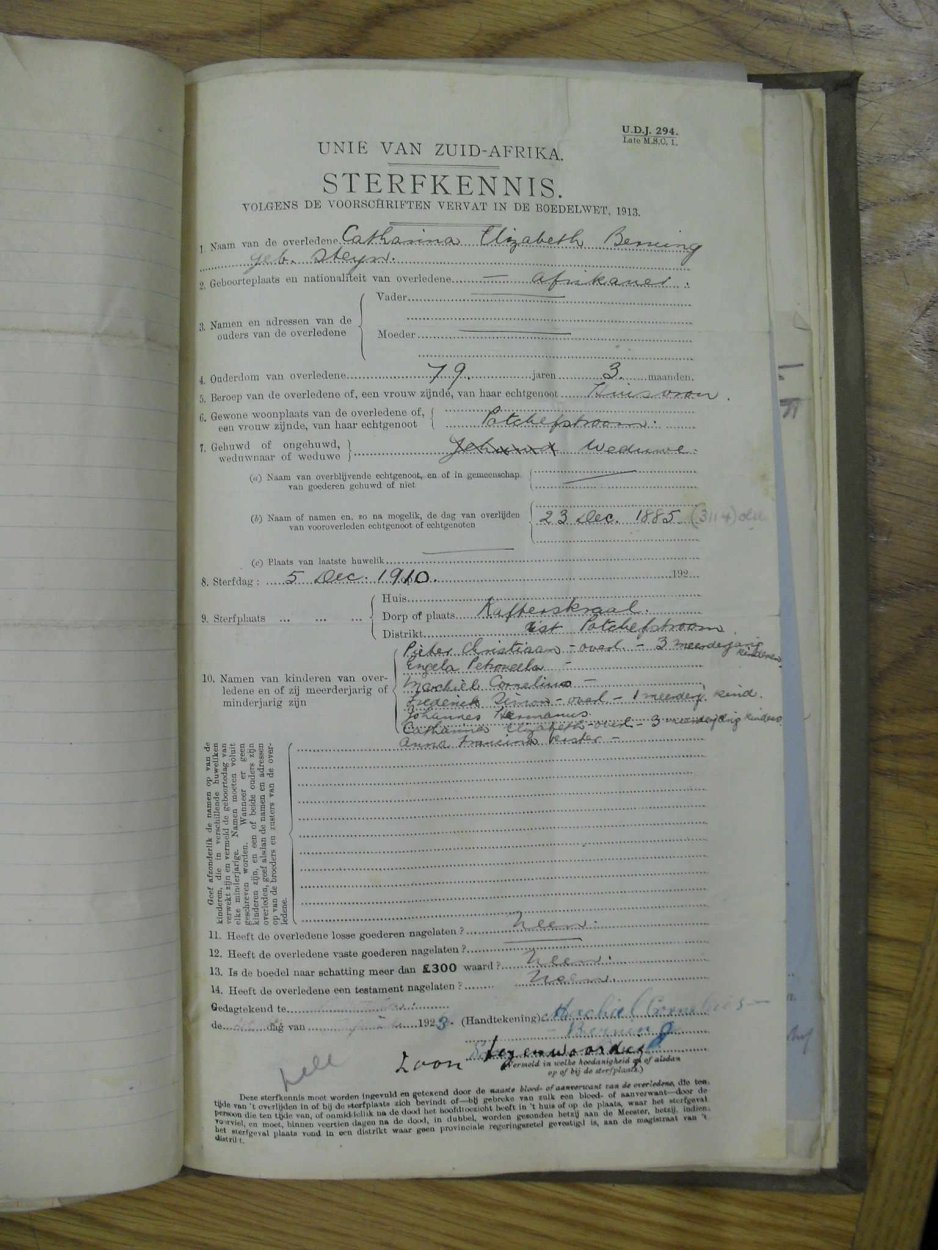 U.D.J. 294.
Late M.S.C. 1.
UNIE VAN ZUID-AFRIKA.
STERFKENNIS.
VOLGENS DE VOORSCHRIFTEN VERVAT IN DE BOEDELWET, 1913.
1. Naam van de overledene Catharina Elizabeth Berning
geb. Steyn.
2. Geboorteplaats en nationaliteit van overledene — Afrikaner.
3. Namen en adressen van de ouders van de overledene
Vader
Moeder
4. Ouderdom van overledene 79 jaren 3 maanden.
5. Beroep van de overledene of, een vrouw zijnde, van haar echtgenoot Huisvrou.
6. Gewone woonplaats van de overledene of,
een vrouw zijnde, van haar echtgenoot Potchefstroom.
7. Gehuwd of ongehuwd,
weduwnaar of weduwe Weduwe.
(a) Naam van overblijvende echtgenoot, en of in gemeenschap
van goederen gehuwd of niet —
(b) Naam of namen en, zo na mogelijk, de dag van overlijden
van vooroverleden echtgenoot of echtgenoten 23 Dec. 1885
(c) Plaats van laatste huwelik —
8. Sterfdag: 5 Dec. 1910. 192
9. Sterfplaats ... ... ...
Huis
Dorp of plaats Kafferskraal.
Distrikt dist Potchefstroom.
10. Namen van kinderen van over-
ledene en of zij meerderjarig of
minderjarig zijn
Pieter Christiaan - overl - 3 meerderjarig kinderen
Engela Petronella -
Machiel Cornelius -
Frederick Simon - overl - 1 meerderj. kind.
Johannes Hermanus
Catharina Elizabeth - overl - 3 meerderjarig kinders
Anna Francina -
Geef afzonderlik de namen op van de
kinderen, die in verschillende huweliken
verwekt zijn en vermeld de geboortedag van
elke minderjarige. Namen moeten voluit
geschreven worden. Wanneer er geen
kinderen zijn, en een of beide ouders zijn
overleden, geef alsdan de namen en adressen
op van de broeders en zusters van de over-
ledene.
11. Heeft de overledene losse goederen nagelaten? Neen.
12. Heeft de overledene vaste goederen nagelaten? —
13. Is de boedel naar schatting meer dan £300 waard? Neen.
14. Heeft de overledene een testament nagelaten? Neen.
Gedagtekend te
de dag van 1923. (Handtekening) Machiel Cornelius
Berning
Zoon tegenwoordig
(Vermeld in welke hoedanigheid en of alsdan
op of bij de sterfplaats.)
Deze sterfkennis moet worden ingevuld en getekend door de naaste bloed- of aanverwant van de overledene, die ten
tijde van 't overlijden in of bij de sterfplaats zich bevindt of—bij gebreke van zulk een bloed- of aanverwant—door de
persoon die ten tijde van, of onmiddellik na de dood het hoofdtoezicht heeft in 't huis of op de plaats, waar het sterfgeval
voorviel, en moet, binnen veertien dagen na de dood, in dubbel, worden gezonden hetzij aan de Meester, hetzij, indien
het sterfgeval plaats vond in een distrikt waar geen provinciale regeringszetel gevestigd is, aan de magistraat van 't
distrikt.